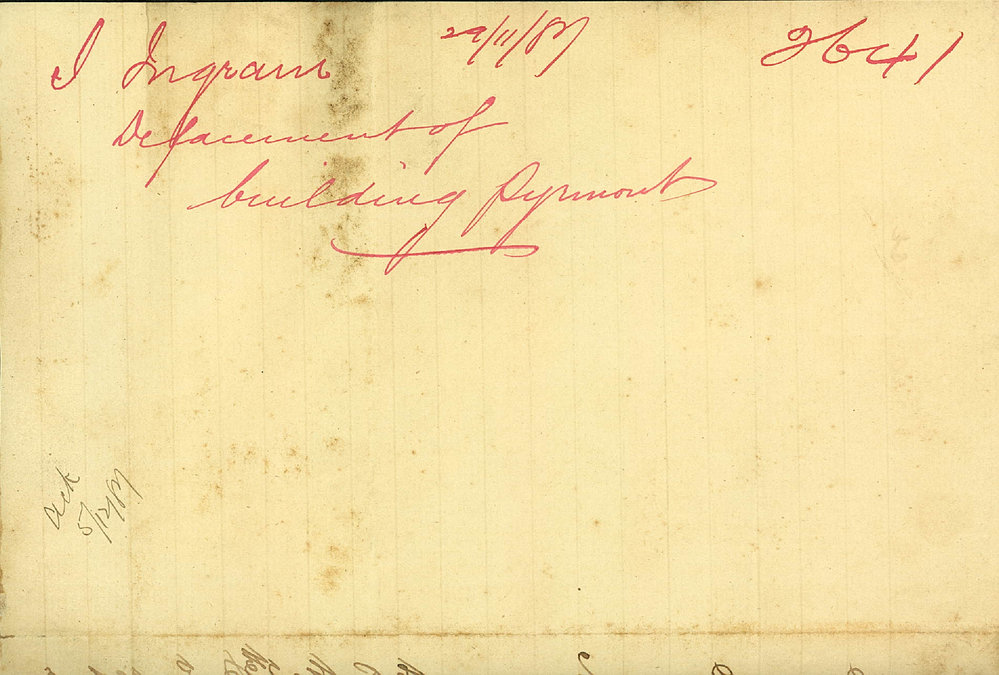 I Ingram 29/11/87 2641
Defacement of
building Pyrmont
Ack
5/12/87